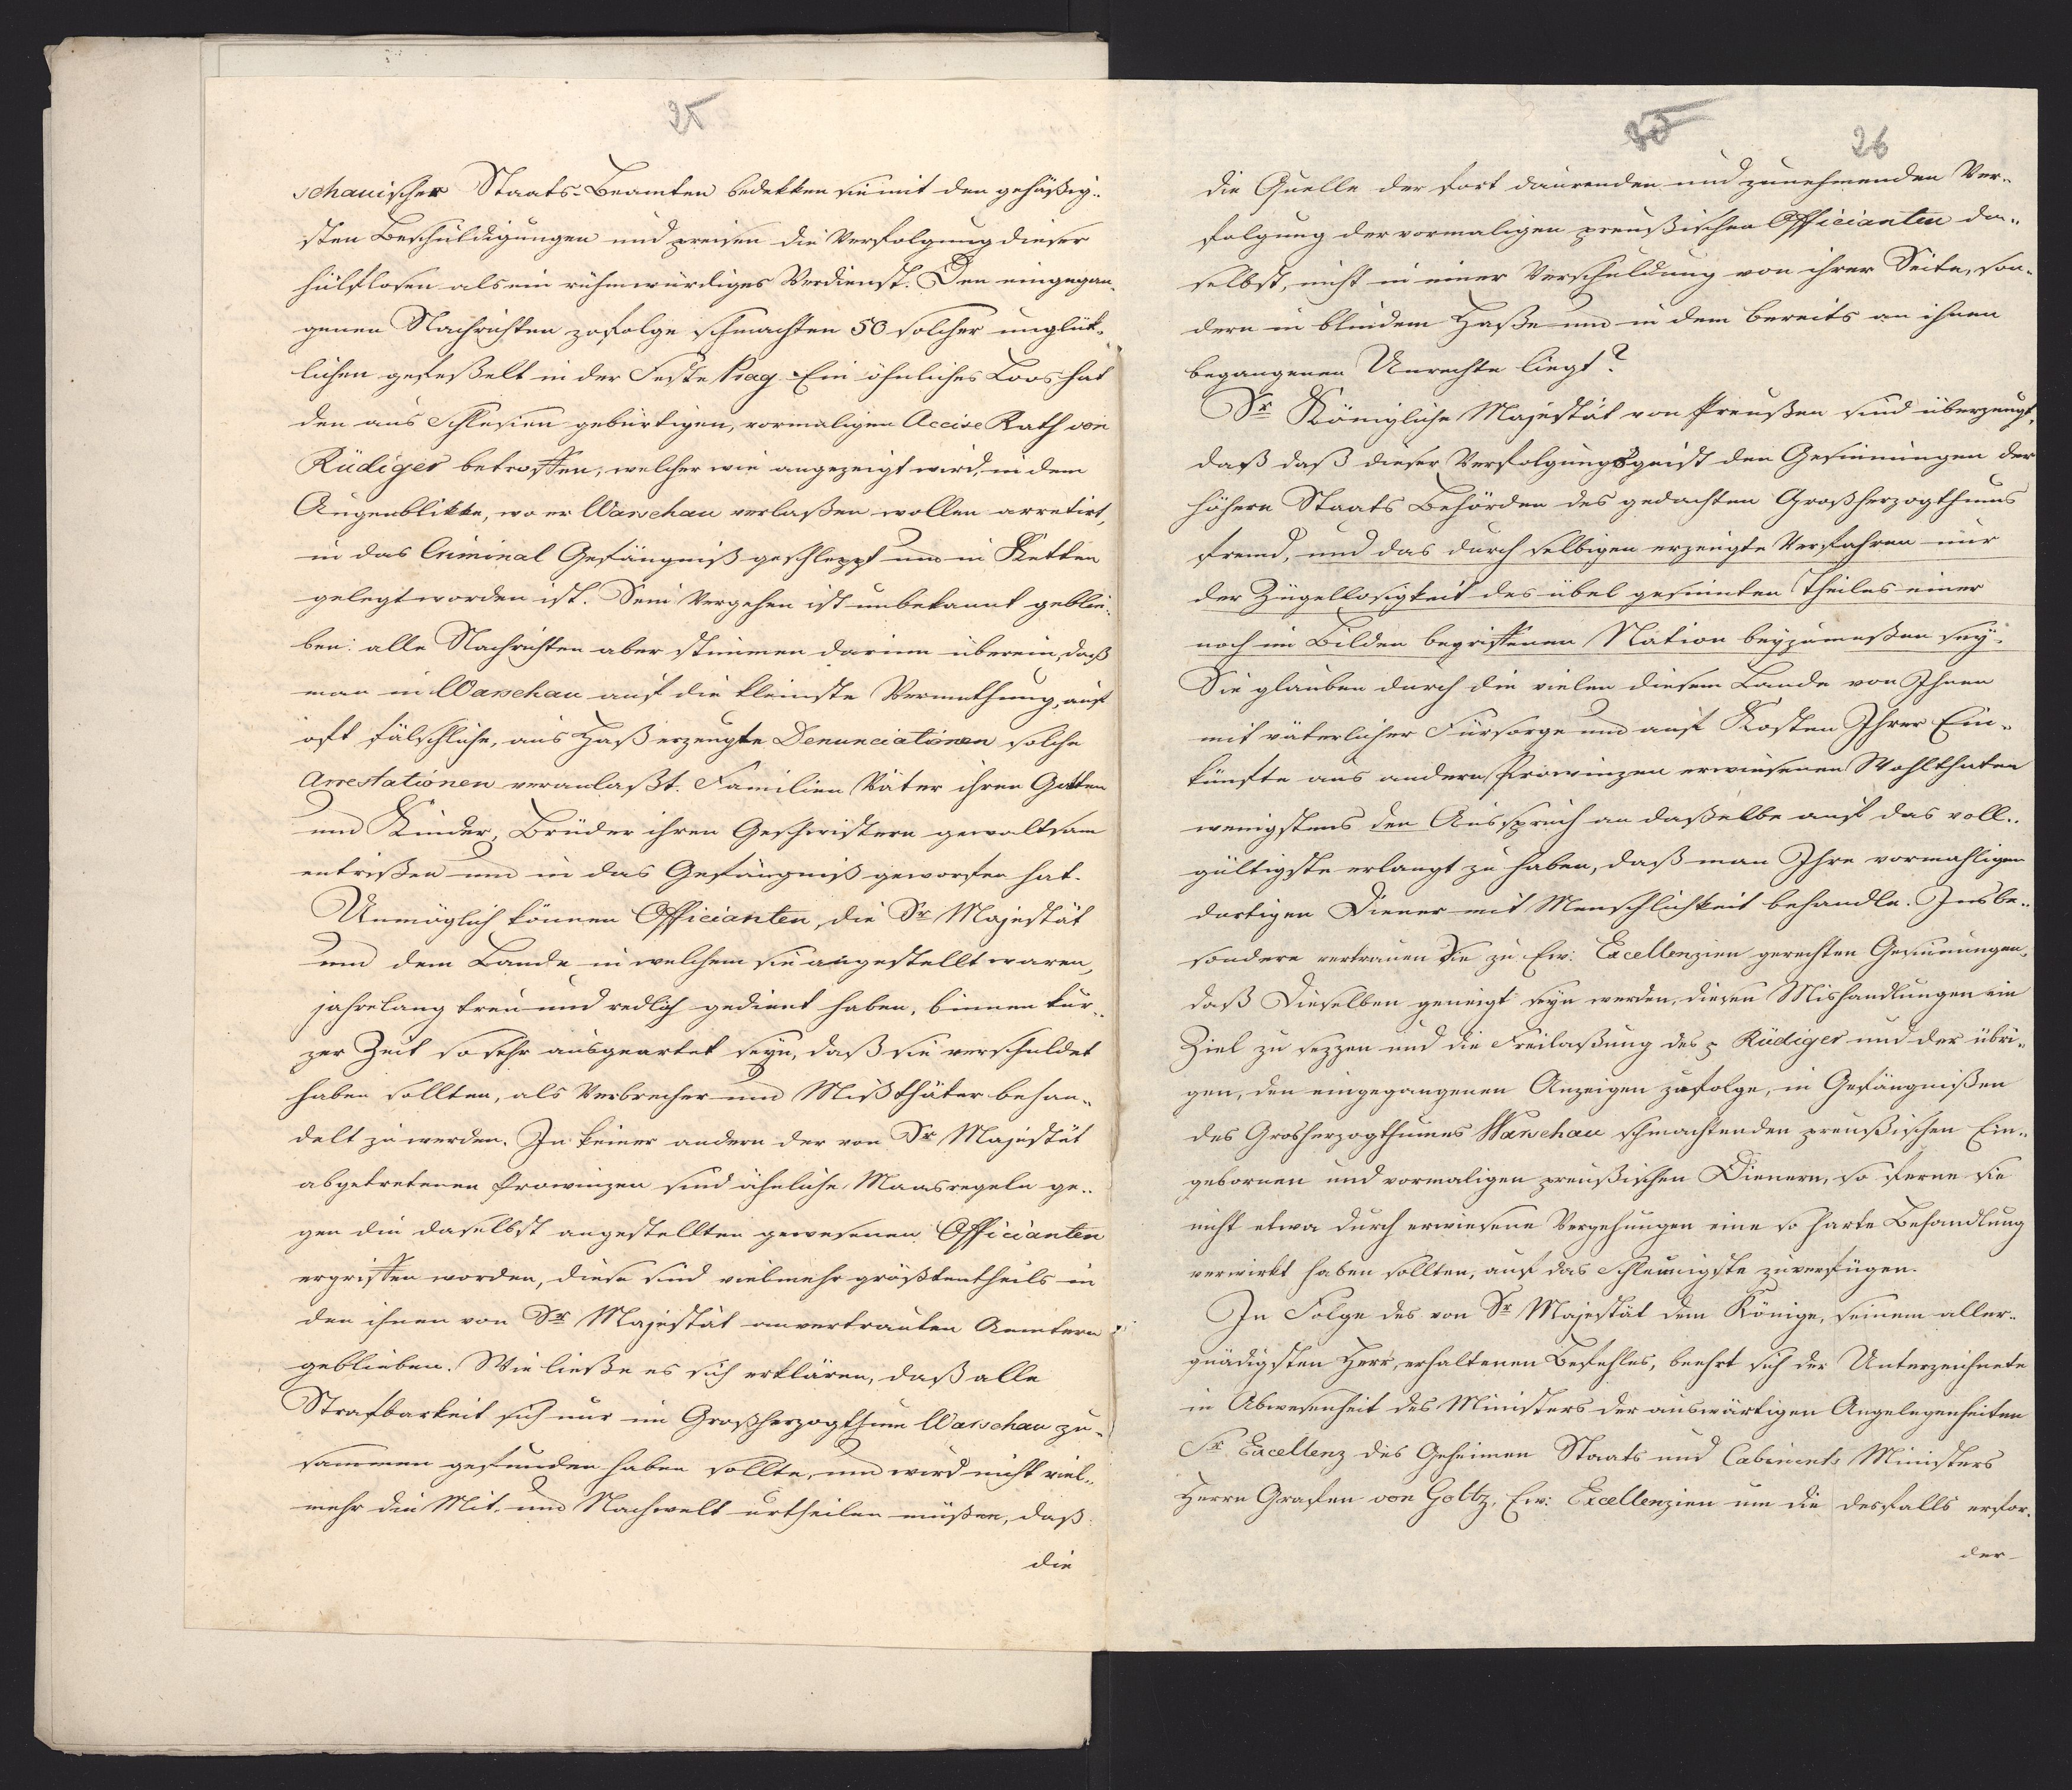 25
schauischer Staats-Beamten bedekken sie mit den gehäßig-
sten Beschuldigungen und preisen die Verfolgung dieser
hülflosen als ein rühmwürdiges Verdienst. Den eingegan-
genen Nachrichten zofolge schmachten 50 solcher unglük-
lichen gefeßelt in der Feste Prag. Ein öhnliches Loos hat
den aus Schlesien gebürtigen, vormaligen Accise Rath von
Rüdiger betroffen, welcher wie angezeigt wird, in dem
Augenblikke, wo er Warschau verlaßen wollen arretirt,
in das Criminal Gefängniß geschleppt und in Ketten
gelegt worden ist. Sein Vergehen ist unbekannt geblie-
ben: alle Nachrichten aber stimmen darinn überein, daß
man in Warschau auf die kleinste Vermuthung, auf
oft fälschliche, aus Haß erzeugte Denunciationen solche
Arrestationen veranlaßt. Familien Väter ihren Gatten
und Kinder, Brüder ihren Geschwistern gewaltsam
entrißen und in das Gefängniß geworfen hat.
Unmöglich können Officianten, die Sr Majestät
und dem Lande in welchem sie angestellt waren,
jahrelang treu und redlich gedient haben, binnen kur-
zer Zeit so sehr ausgeartet seyn, daß sie verschuldet
haben sollten, als Verbrecher und Mißthäter behan-
delt zu werden. In keiner andern der von Sr Majestät
abgetretenen Provinzen sind ähnliche Maasregeln ge-
gen die daselbst angestellten gewesenen Officianten
ergriffen worden, diese sind vielmehr größtentheils in
den ihnen von Sr Majestät anvertrauten Aemtern
geblieben. Wie ließe es sich erklären, daß alle
Strafbarkeit sich nur im Großherzogthum Warschau zu-
sammen gefunden haben sollte, und wird nicht viel-
mehr die Mit- und Nachwelt urtheilen müßen, daß
die
25
26
die Quelle der fort daurenden und zunehmenden Ver-
folgung der vormaligen preußischen Officianten da-
selbst, nicht in einer Verschuldung von ihrer Seite, son-
dern in blindem Haße und in dem bereits an ihnen
begangenen Unrechte liegt?
Sr Königliche Majestät von Preußen sind überzeugt,
daß daß dieser Verfolgungsgeist den Gesinnungen der
höhern Staats Behörden des gedachten Großherzogthums
fremd, und das durch selbigen erzeugte Verfahren nur
der Zügellosigkeit des übel gesinnten Theiles einer
noch im Bilden begriffenen Nation beyzumeßen sey.
Sie glauben durch die vielen diesem Lande von Ihnen
mit väterlicher Fürsorge und auf Kosten Ihrer Ein-
künfte aus andern Provinzen erwiesenen Wohlthaten
wenigstens den Anspruch an daßelbe auf das voll-
gültigste erlangt zu haben, daß man Ihre vormahligen
dortigen Diener mit Menschlichkeit behandle. Insbe-
sondere vertrauen Sie zu Ew: Excellenzien gerechten Gesinnungen,
daß Dieselben geneigt seyn werden, diesen Mishandlungen ein
Ziel zu sezzen und die Freilaßung des p Rüdiger und der übri-
gen, den eingegangenen Anzeigen zufolge, in Gefängnißen
des Grosherzogthumes Warschau schmachtenden preußischen Ein-
gebornen und vormaligen preußischen Dienern, so ferne sie
nicht etwa durch erwiesene Vergehungen eine so harte Behandlung
verwirkt haben sollten, auf das schleunigste zu verfügen.
In Folge des von Sr Majestät dem Könige, seinem aller-
gnädigsten Herr, erhaltenen Befehles, beehrt sich der Unterzeichnete
in Abwesenheit des Ministers der auswärtigen Angelegenheiten
Sr Excellenz des Geheimen Staats und Cabinets Ministers
Herrn Grafen von Goltz, Ew: Excellenzien um die desfalls erfor-
der-